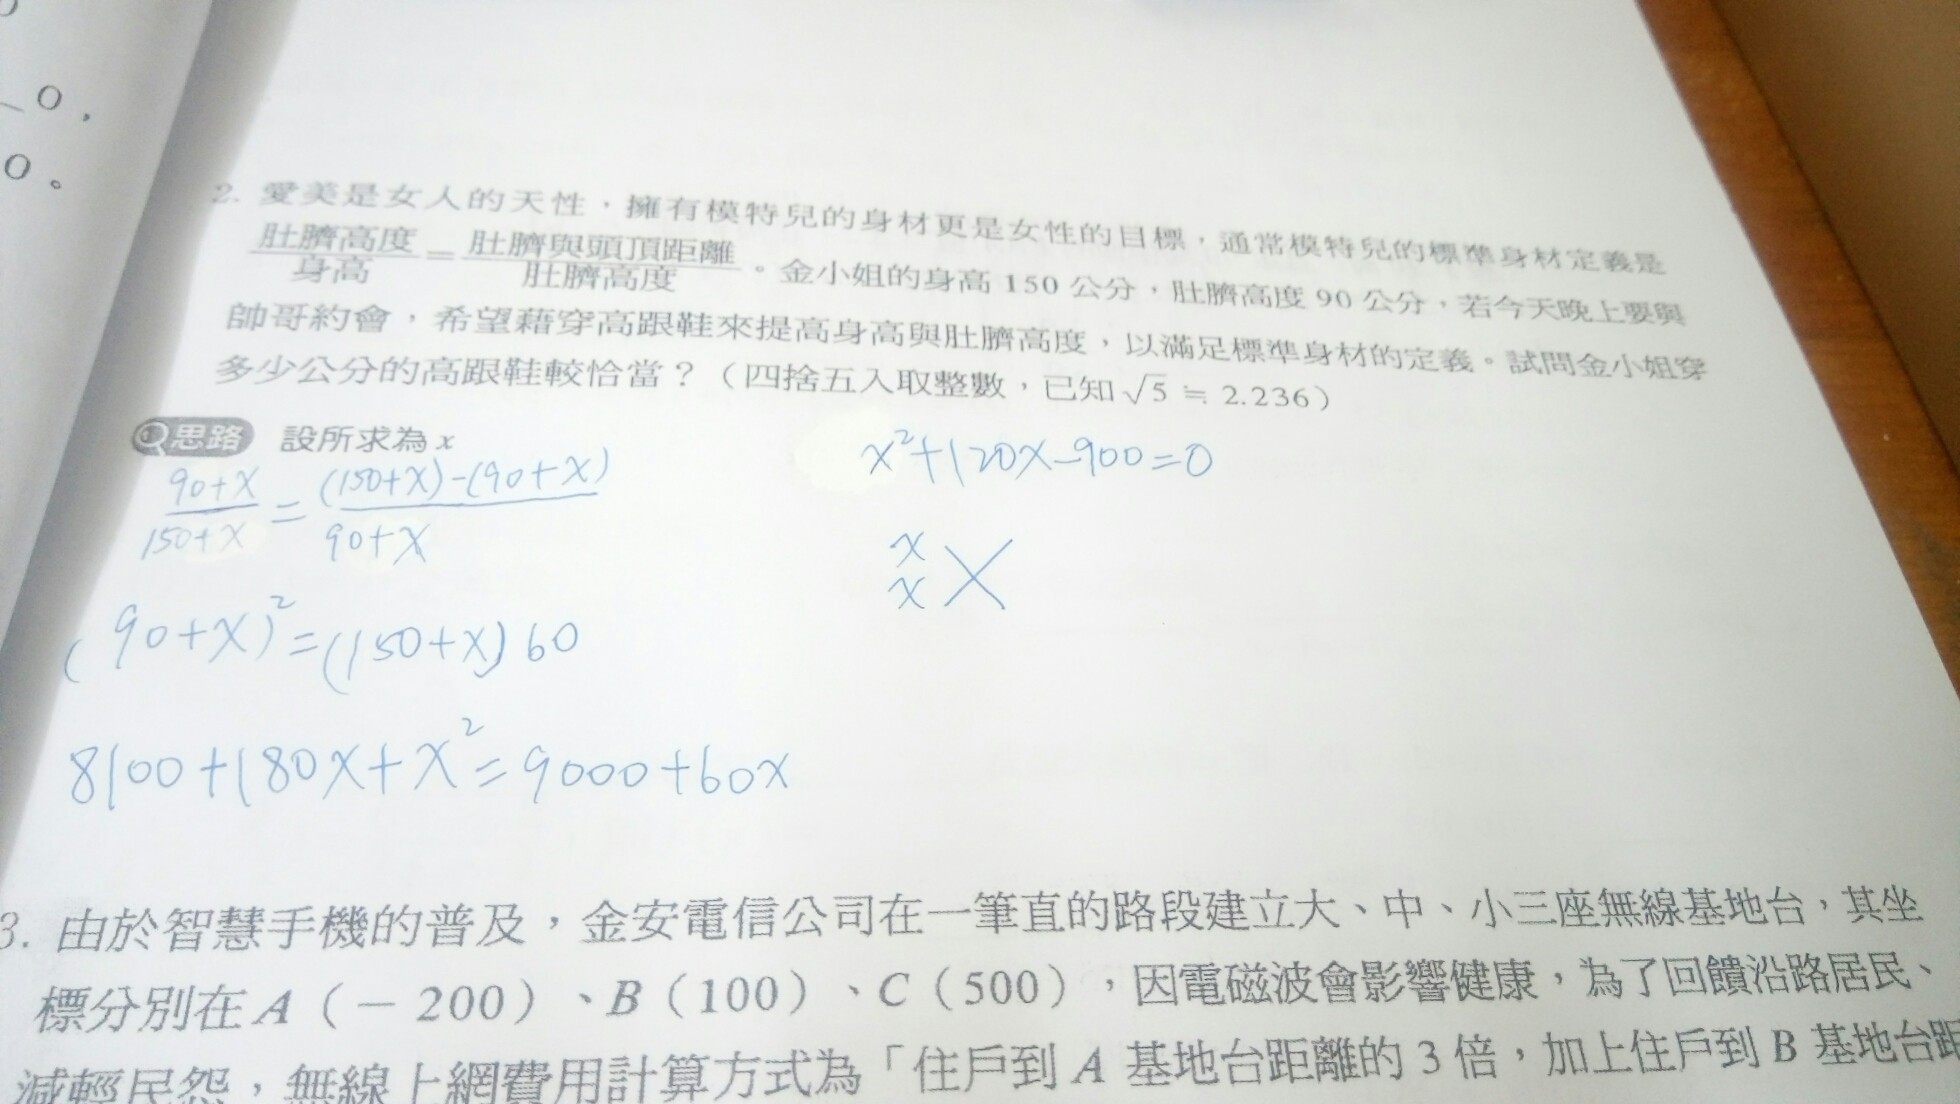 0，
0。
2. 愛美是女人的天性，擁有模特兒的身材更是女性的目標，通常模特兒的標準身材定義是
肚臍高度/身高 = 肚臍與頭頂距離/肚臍高度。金小姐的身高 150 公分，肚臍高度 90 公分，若今天晚上要與
帥哥約會，希望藉穿高跟鞋來提高身高與肚臍高度，以滿足標準身材的定義。試問金小姐穿
多少公分的高跟鞋較恰當？（四捨五入取整數，已知 √5 ≒ 2.236）
思路 設所求為 x
(90+x)/(150+x) = ((150+x)-(90+x))/(90+x)
(90+x)²=(150+x)60
8100+180x+x²=9000+60x
x²+120x-900=0
x
x
3. 由於智慧手機的普及，金安電信公司在一筆直的路段建立大、中、小三座無線基地台，其坐
標分別在 A（－200）、B（100）、C（500），因電磁波會影響健康，為了回饋沿路居民、
減輕民怨，無線上網費用計算方式為「住戶到 A 基地台距離的 3 倍，加上住戶到 B 基地台距